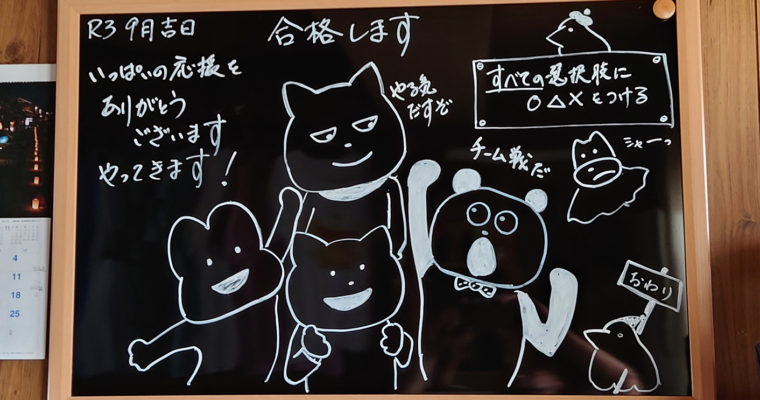 R3 9月吉日
合格します
いっぱいの応援を
ありがとう
ございます
やってきます!
やる気
だすぞ
すべての選択肢に
○△×をつける
チーム戦だ
シャーっ
おわり
11
4
11
18
25